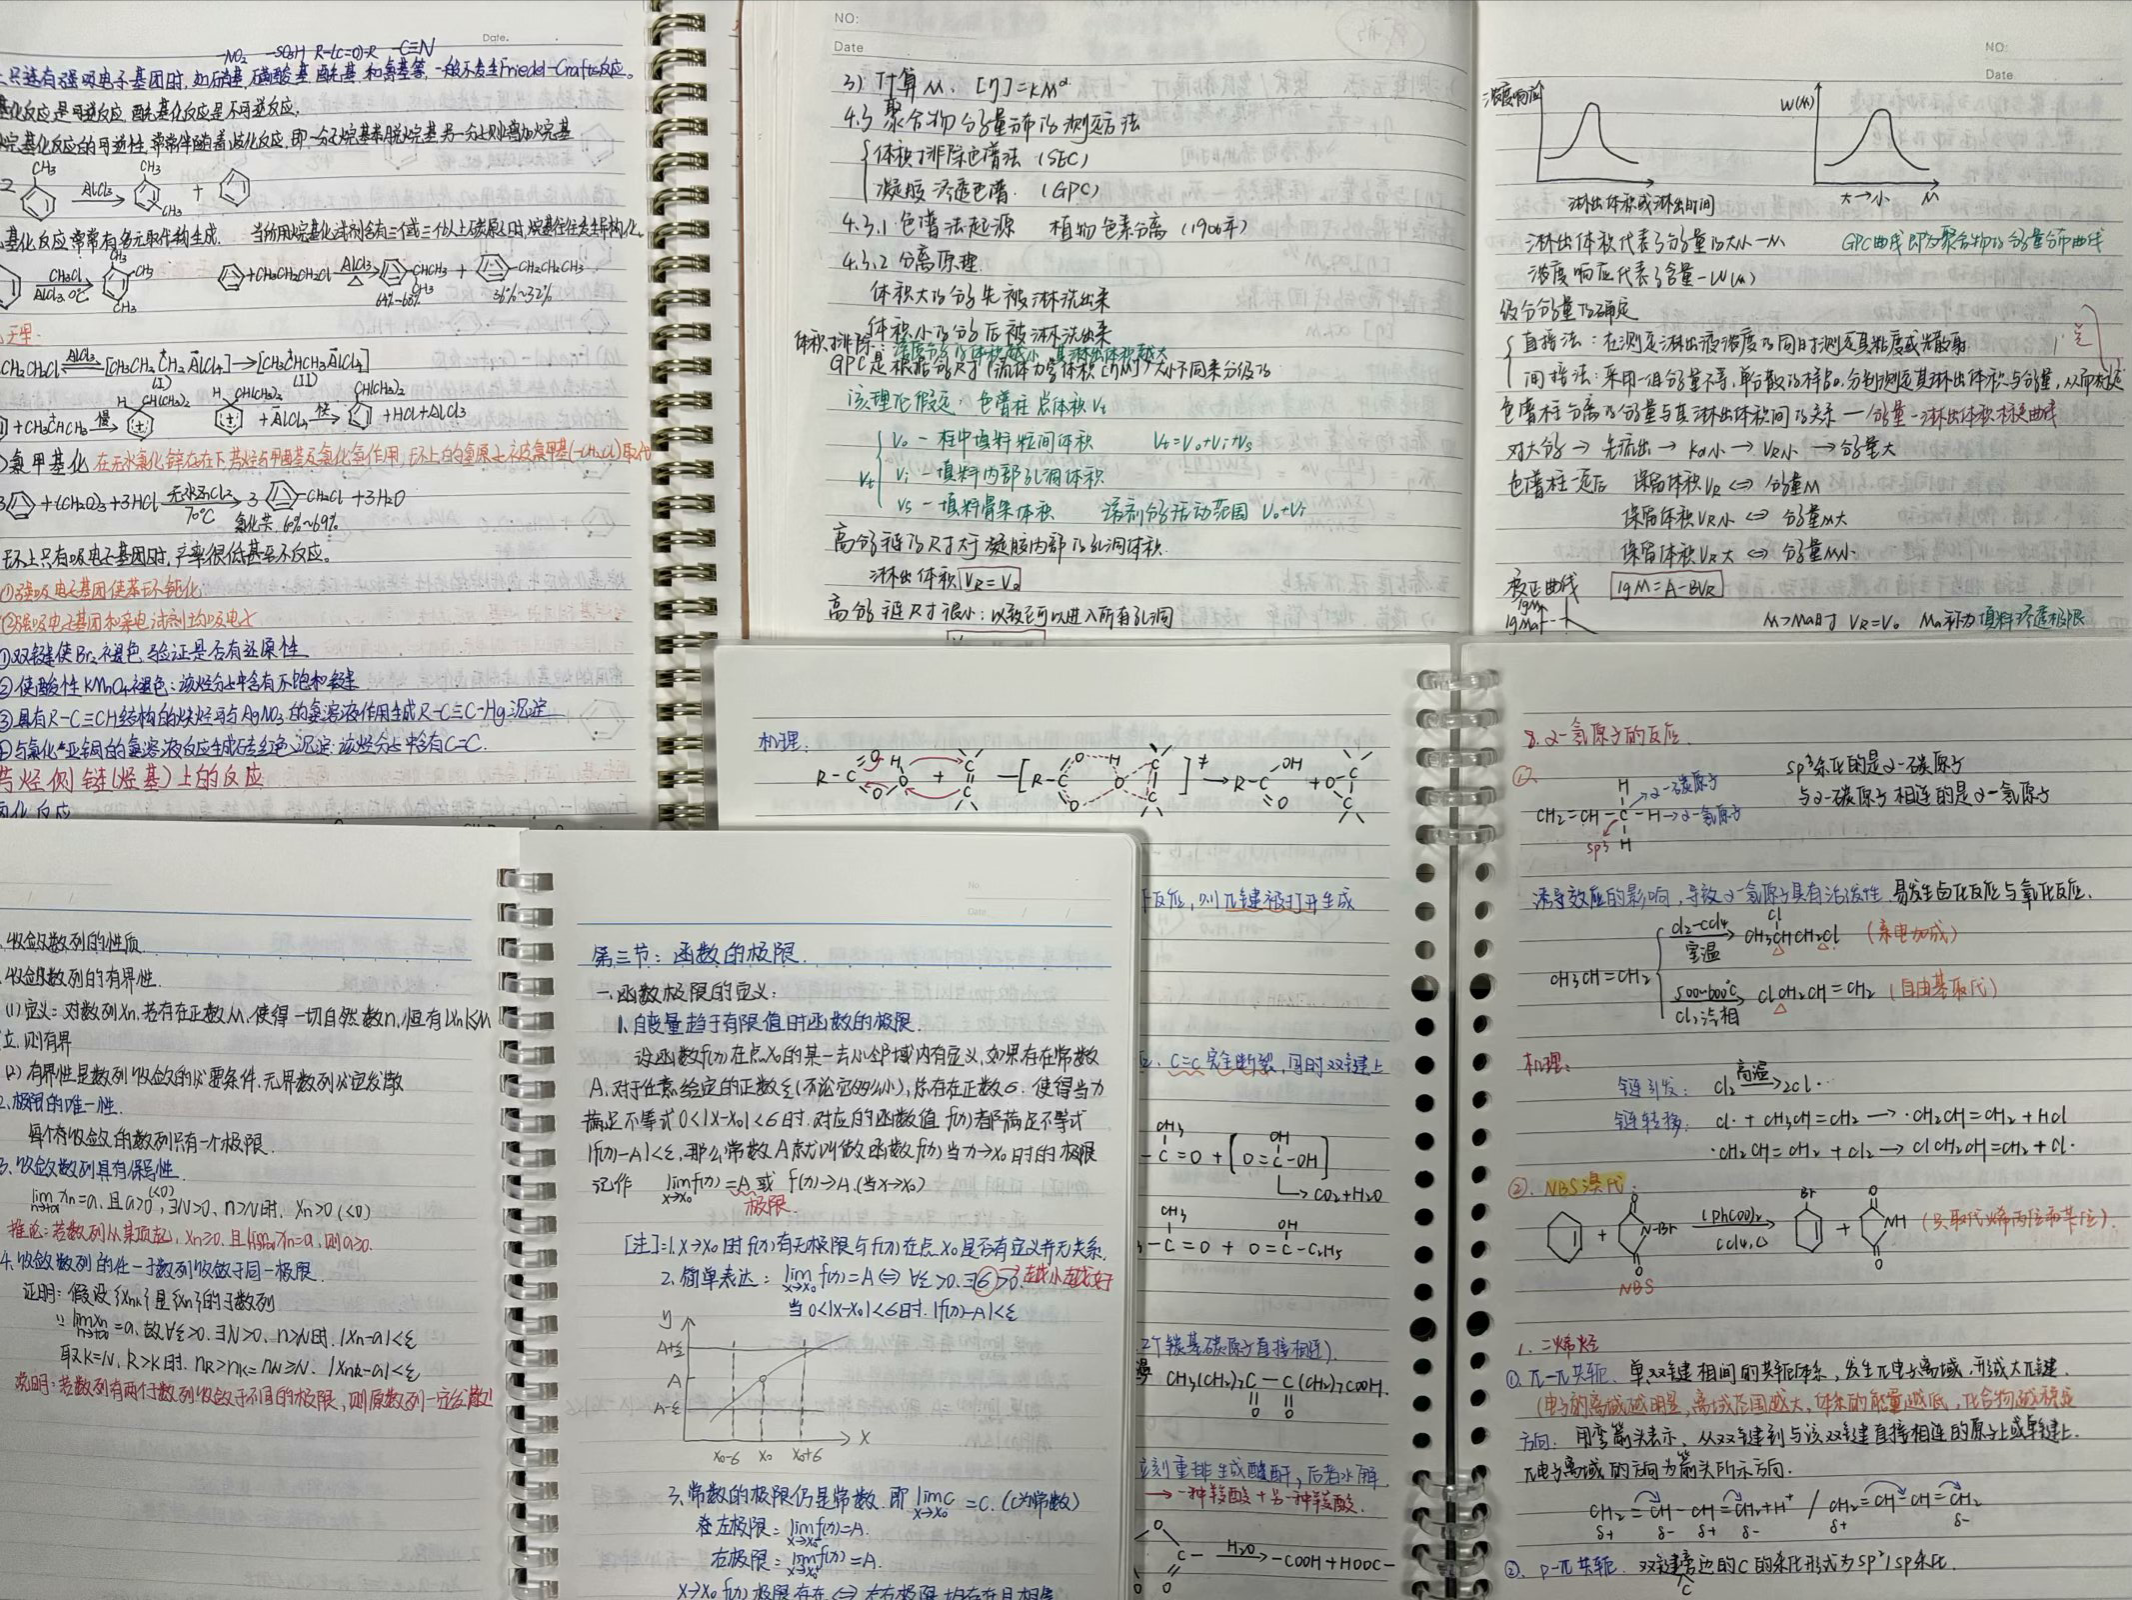 Date.
-NO₂ -SO₃H R-(C=O)-R -C≡N
上只连有强吸电子基团时,如硝基,磺酸基,酰基,和氰基等,一般不发生Friedel-Crafts反应。
基化反应是可逆反应,酰基化反应是不可逆反应。
烷基化反应的可逆性,常常伴随着歧化反应,即一分子烷基苯脱烷基另一分子则增加烷基
2 CH₃ AlCl₃ → CH₃ CH₃ +
基化反应常常有多元取代物生成. 当所用烷基化试剂含有三个或三个以上碳原子时,烷基往往发生异构化。
CH₃Cl AlCl₃ 0℃ CH₃ CH₃ CH₃ +CH₃CH₂CH₂Cl AlCl₃ △ CHCH₃ CH₃ + CH₂CH₂CH₃
64%~68% 36%~32%
CH₂CH₂Cl AlCl₃ ⇌ [CH₃CH₂ĊH₂ ĀlCl₄] → [CH₃ĊHCH₃ĀlCl₄]
(I) (II)
+CH₃ĊHCH₃ 慢 H CH(CH₃)₂ H CH(CH₃)₂ + ĀlCl₄ 快 CH(CH₃)₂ +HCl+AlCl₃
氯甲基化 在无水氯化锌存在下,芳烃与甲醛及氯化氢作用,环上的氢原子被氯甲基(-CH₂Cl)取代
3 +(CH₂O)₃+3HCl 无水ZnCl₂ 70℃ → 3 -CH₂Cl +3H₂O
氯化苄. 60%~69%
环上只有吸电子基团时,产率很低甚至不反应。
①强吸电子基团使苯环钝化
②强吸电子基团和亲电试剂均吸电子
①双键使Br₂褪色,验证是否有还原性
②使酸性KMnO₄褪色:该烃分子中含有不饱和键
③具有R-C≡CH结构的炔烃可与AgNO₃的氨溶液作用生成R-C≡C-Hg沉淀
④与氯化亚铜的氨溶液反应生成砖红色沉淀:该烃分子中含有C≡C.
芳烃侧链(烃基)上的反应
卤化反应
NO:
Date
3) 计算M. [η]=KMᵅ
4.3 聚合物分子量分布的测定方法
体积排除色谱法 (SEC)
凝胶渗透色谱. (GPC)
4.3.1 色谱法起源 植物色素分离 (1906年)
4.3.2 分离原理.
体积大的分子先被淋洗出来
体积小的分子后被淋洗出来
体积排除: 溶质分子的体积越小,其淋出体积越大
GPC是根据分子尺寸(流体力学体积[η]M)大小不同来分级的
该理论假定: 色谱柱总体积Vt
Vt
V₀ - 柱中填料粒间体积 Vt=V₀+Vi+Vs
Vi - 填料内部孔洞体积
Vs - 填料骨架体积 溶剂分子活动范围 V₀+Vi
高分子链的尺寸大于凝胶内部的孔洞体积.
淋出体积 VR=V₀
高分子链尺寸很小:以致它可以进入所有孔洞
NO:
Date
浓度响应
淋出体积或淋出时间
W(M)
大→小 M
淋出体积代表了分子量的大小—M GPC曲线即为聚合物的分子量分布曲线
浓度响应代表了含量—W(M)
级分分子量的确定
直接法:在测定淋出液浓度的同时测定其粘度或光散射
间接法:采用一组分子量不等,单分散的样品,分别测定其淋出体积与分子量,从而标定
色谱柱分离的分子量与其淋出体积间的关系 — 分子量-淋出体积标定曲线
对大分子 → 先流出 → Kd小 → VR小 → 分子量大
色谱柱一定后 保留体积VR ⇔ 分子量M
保留体积VR小 ⇔ 分子量M大
保留体积VR大 ⇔ 分子量M小
校正曲线 lgM=A-BVR
lgM
lgMa M>Ma时 VR=V₀ Ma称为填料渗透极限
机理:
R-C O O H O + C C → [R-C O O H O C C]‡ → R-C OH O + O C C
反应,则π键被打开生成
C=C完全断裂,同时双键上
CH₃ -C=O + [OH O=C-OH]
CO₂+H₂O
CH₃ -C=O + OH O=C-C₂H₅
2个羰基碳原子直接相连).
CH₃(CH₂)₇C-C(CH₂)₇COOH.
O O
立刻重排生成酸酐,后者水解
→一种羧酸+另一种羧酸.
O C- O O H₂O → -COOH+HOOC-
8. α-氢原子的反应.
①. H
CH₂=CH-C-H→α-氢原子
→α-碳原子
sp³ H
sp³杂化的是α-碳原子
与α-碳原子相连的是α-氢原子
诱导效应的影响,导致α-氢原子具有活泼性,易发生卤代反应与氧化反应.
CH₃CH=CH₂
Cl₂-CCl₄ 室温 → CH₃CHCH₂Cl Cl (亲电加成)
500~600℃ Cl₂,汽相 → ClCH₂CH=CH₂ (自由基取代)
机理:
链引发: Cl₂ 高温 → 2Cl·
链转移: Cl· + CH₃CH=CH₂ → ·CH₂CH=CH₂ + HCl
·CH₂CH=CH₂ + Cl₂ → ClCH₂CH=CH₂ + Cl·
②. NBS溴代.
+ O N-Br O (PhCOO)₂ CCl₄,△ → Br + O NH O (只取代烯丙位和苄位).
NBS
1. 二烯烃
①. π-π共轭. 单双键相间的共轭体系,发生π电子离域,形成大π键.
(电子的离域越明显,离域范围越大,体系的能量越低,化合物越稳定
方向: 用弯箭头表示,从双键到与该双键直接相连的原子上或单键上.
π电子离域的方向为箭头所示方向.
CH₂=CH-CH=CH₂+H⁺ / CH₂=CH-CH=CH₂
δ+ δ- δ+ δ- δ+ δ-
②. p-π共轭. 双键旁边的C的杂化形式为sp²/sp杂化.
C
收敛数列的性质
收敛数列的有界性.
(1)定义:对数列Xn,若存在正数M,使得一切自然数n,恒有|Xn|≤M
立,则有界
(2)有界性是数列收敛的必要条件,无界数列必定发散
2.极限的唯一性.
每个收敛的数列只有一个极限.
3.收敛数列具有保号性.
lim n→∞ Xn=a,且a>0(<0),∃N>0, n>N时. Xn>0(<0)
推论:若数列从某项起, Xn≥0.且lim n→∞ Xn=a,则a≥0.
4.收敛数列的任一子数列收敛于同一极限.
证明:假设{Xnk}是{Xn}的子数列
∵ lim n→∞ Xn=a,故∀ε>0.∃N>0, n>N时. |Xn-a|<ε
取K=N, k>K时. nk>nK=nN≥N. |Xnk-a|<ε
说明:若数列有两个子数列收敛于不同的极限,则原数列一定发散
No
Date
第三节:函数的极限.
一.函数极限的定义:
1.自变量趋于有限值时函数的极限.
设函数f(x)在点X₀的某一去心邻域内有定义,如果存在常数
A,对于任意给定的正数ε(不论它多么小),总存在正数δ.使得当x
满足不等式0<|X-X₀|<δ时.对应的函数值f(x)都满足不等式
|f(x)-A|<ε,那么常数A就叫做函数f(x)当x→X₀时的极限
记作 lim x→x₀ f(x)=A 或 f(x)→A.(当X→X₀)
极限.
[注]:1.X→X₀时f(x)有无极限与f(x)在点X₀是否有定义并无关系.
2.简单表达: lim x→x₀ f(x)=A⇔∀ε>0.∃δ>0.越小越好
当0<|X-X₀|<δ时.|f(x)-A|<ε
y
A+ε
A
A-ε
X₀-δ X₀ X₀+δ X
3.常数的极限仍是常数.即 lim x→x₀ C=C.(C为常数)
左极限= lim x→x₀⁻ f(x)=A.
右极限= lim x→x₀⁺ f(x)=A.
X→X₀ f(x)极限存在⇔左右极限均存在且相等